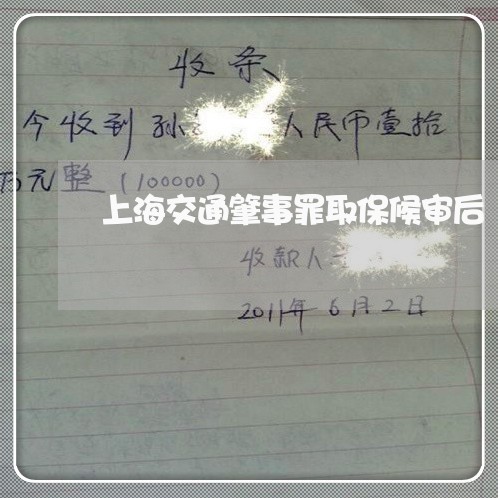 收条
今收到孙 人民币壹拾
万元整(100000)
上海交通肇事罪取保候审后
收款人
2011年6月2日